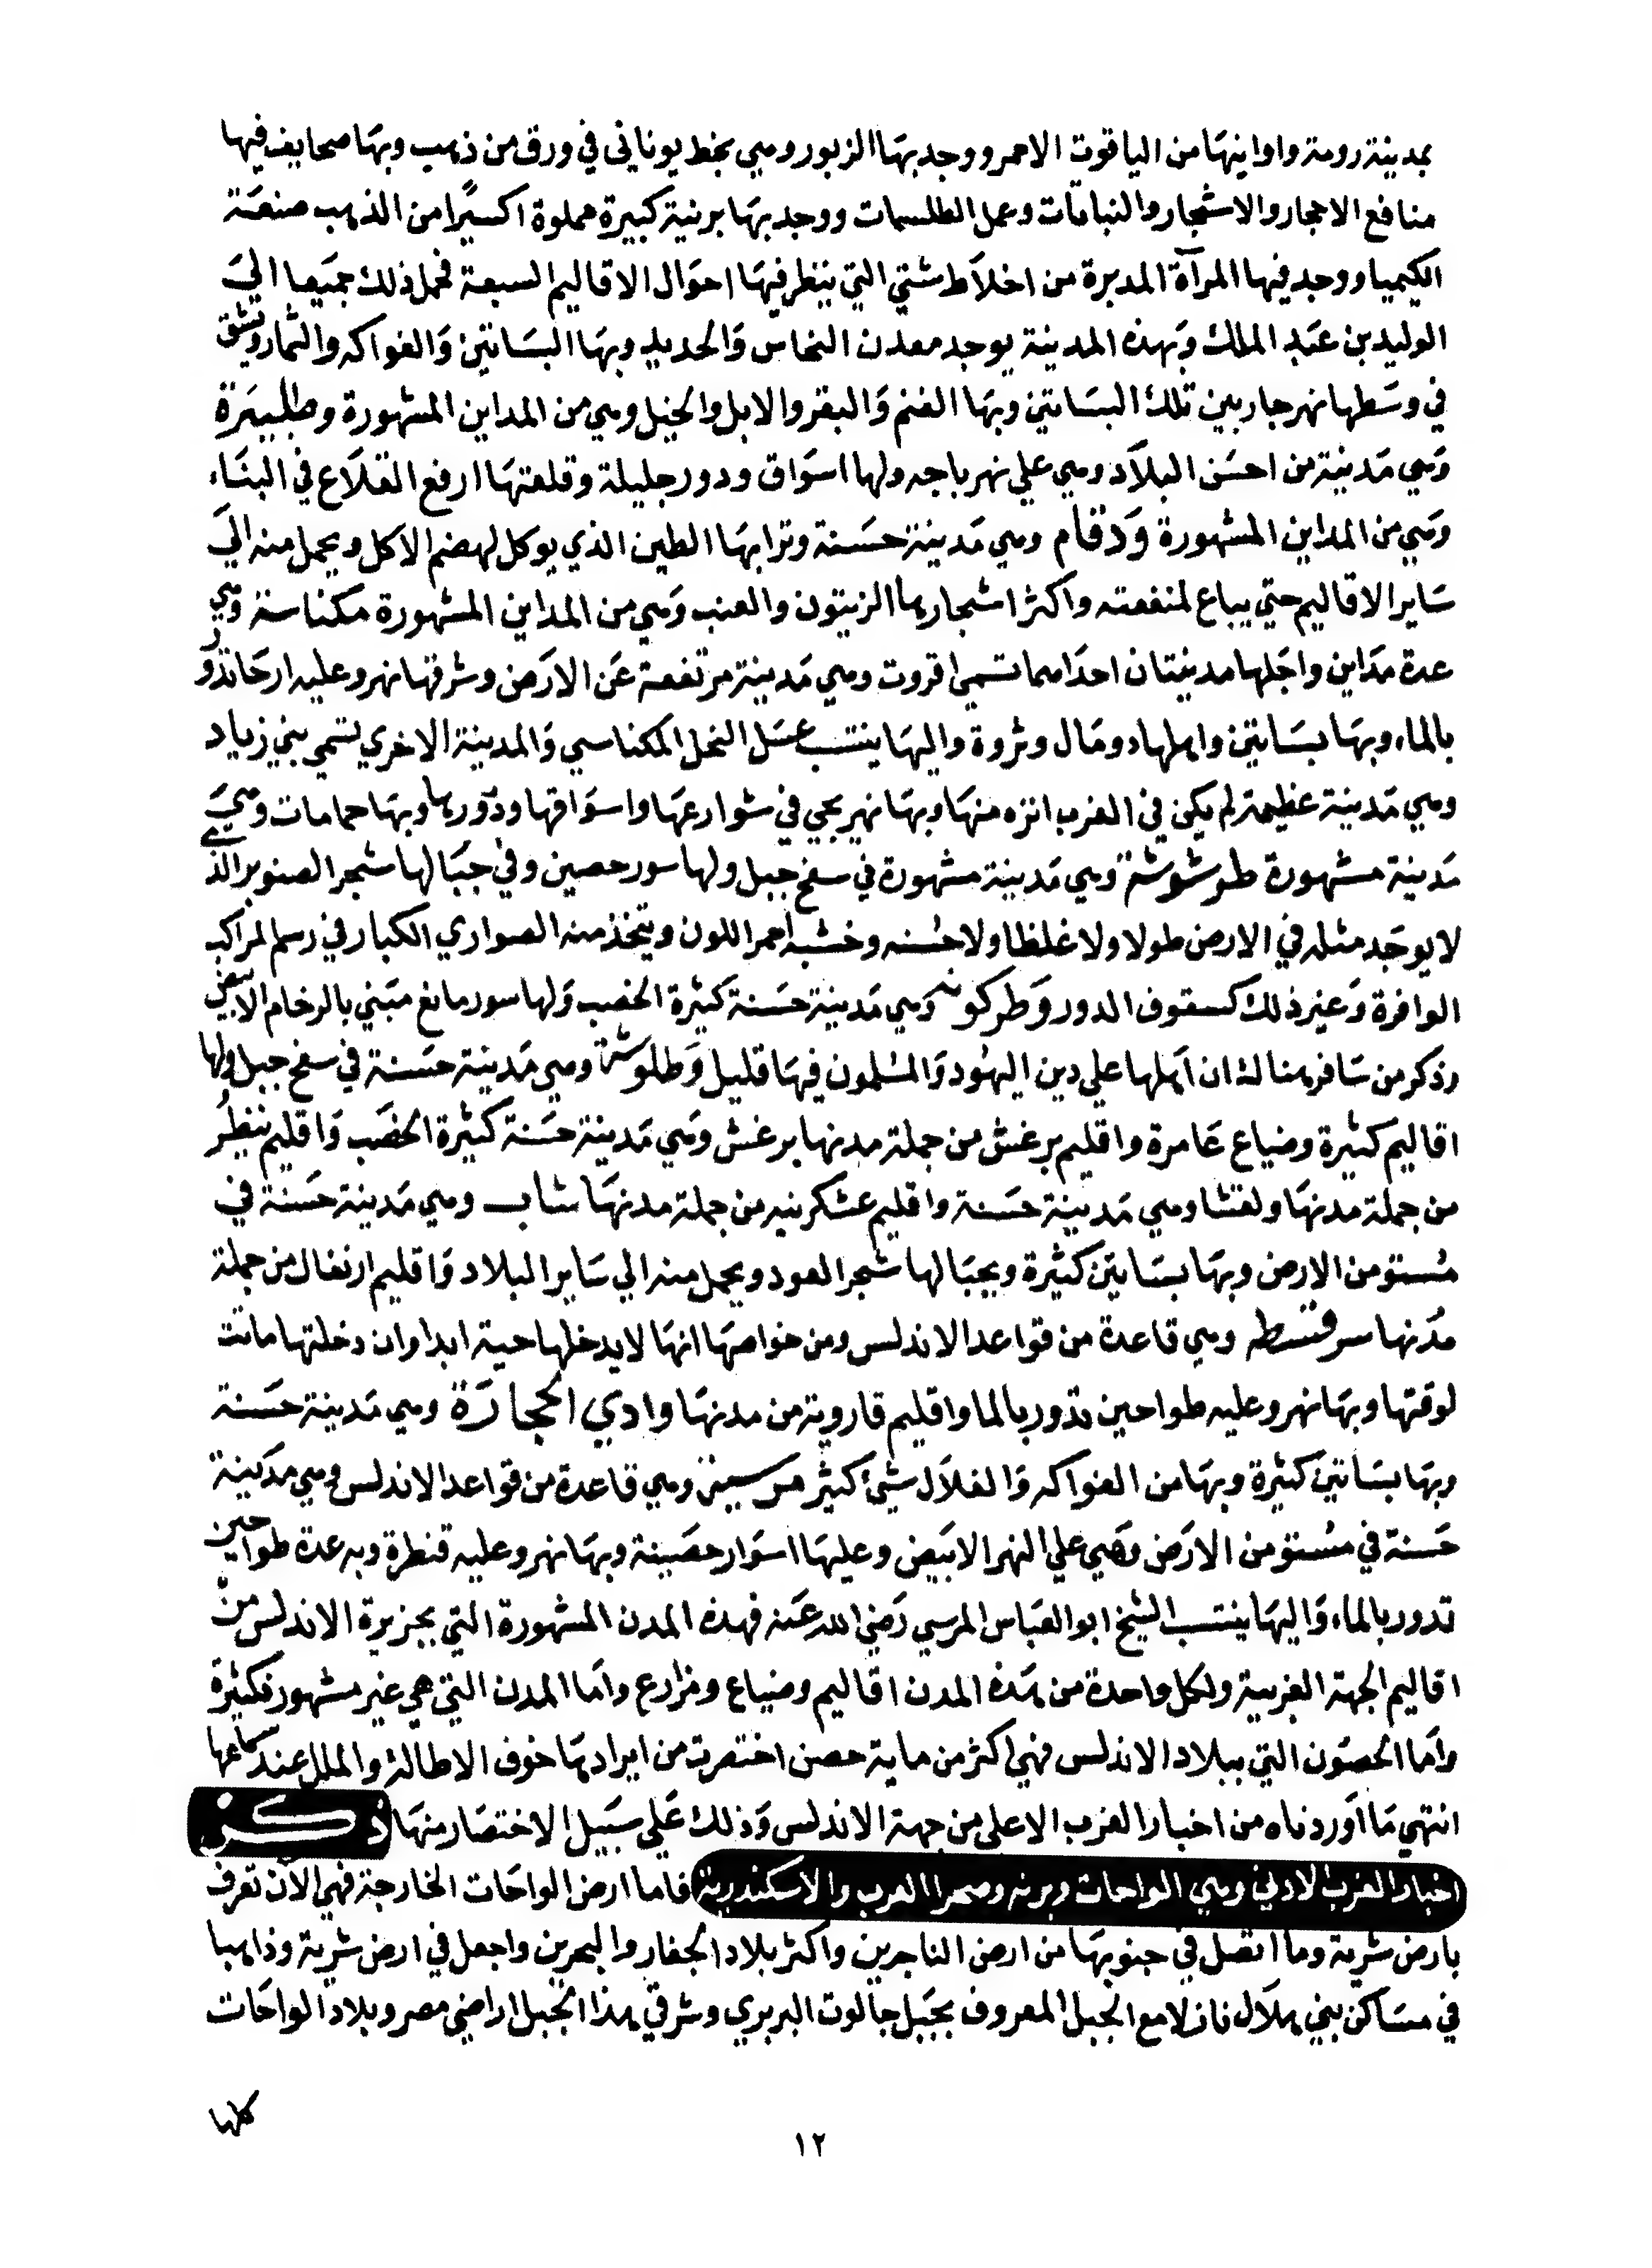 بمدينة رومة واوانيها من الياقوت الاحمر ووجد بها الزبور وهي بخط يوناني في ورق من ذهب وبها صحايف فيها
منافع الاحجار والاشجار والنباتات وعمل الطلسمات ووجد بها برنية كبيرة مملوة اكسيرا من الذهب صنعة
الكيميا ووجد فيها المرآة المدبرة من اخلاط شتي التي ينظر فيها احوال الاقاليم السبعة فحمل ذلك جميعا الي
الوليد بن عبد الملك وبهذه المدينة يوجد معدن النحاس والحديد وبها البساتين والفواكه والثمار ويشق
في وسطها نهر جار بين تلك البساتين وبها الغنم والبقر والابل والخيل وهي من المداين المشهورة وطلبيرة
وهي مدينة من احسن البلاد وهي علي نهر باجه ولها اسواق ودور جليلة وقلعتها ارفع القلاع في البناء
وهي من المداين المشهورة ودقام وهي مدينة حسنة وترابها الطين الذي يوكل لهضم الاكل ويحمل منه الي
ساير الاقاليم حتي يباع لمنفعته واكثر اشجارها الزيتون والعنب وهي من المداين المشهورة مكناسة وهي
عدة مداين واجلها مدينتان احداهما تسمي اقروت وهي مدينة مرتفعة عن الارض وشرقها نهر وعليه ارحا تدور
بالماء وبها بساتين واهلها دو مال وثروة واليها ينتسب عسل النحل المكناسي والمدينة الاخري تسمي بني زياد
وهي مدينة عظيمة لم يكن في الغرب انزه منها وبها نهر يجي في شوارعها واسواقها ودورها وبها حمامات وهي
مدينة مشهورة طرشوشة وهي مدينة مشهورة في سفح جبل ولها سور حصين وفي جبالها شجر الصنوبر الذي
لا يوجد مثله في الارض طولا ولا غلظا ولا حسنه وخشبه احمر اللون ويتخذ منه الصواري الكبار في رسم المراكب
الوافرة وغير ذلك كسقوف الدور وطركونه وهي مدينة حسنة كثيرة الخصب ولها سور مانع مبني بالرخام الابيض
وذكر من سافر هنالك ان اهلها علي دين اليهود والمسلمون فيها قليل وطلوشة وهي مدينة حسنة في سفح جبل ولها
اقاليم كثيرة وضياع عامرة واقليم برغش من جملة مدنها برغش وهي مدينة حسنة كثيرة الخصب واقليم ينظر
من جملة مدنها ولفشا وهي مدينة حسنة واقليم عشكرينه من جملة مدنها شاب وهي مدينة حسنة في
مستو من الارض وبها بساتين كثيرة وبجبالها شجر العود ويحمل منه الي ساير البلاد واقليم ارنفال من جملة
مدنها سرقسطه وهي قاعدة من قواعد الاندلس ومن خواصها انها لا يدخلها حية ابدا وان دخلتها ماتت
لوقتها وبها نهر وعليه طواحين تدور بالما واقليم قاروية من مدنها وادي الحجارة وهي مدينة حسنة
وبها بساتين كثيرة وبها من الفواكه والغلال شيء كثير مرسية وهي قاعدة من قواعد الاندلس وهي مدينة
حسنة في مستو من الارض وهي علي النهر الابيض وعليها اسوار حصينة وبها نهر وعليه قنطرة وبه عدة طواحين
تدور بالماء واليها ينتسب الشيخ ابو العباس المرسي رضي الله عنه فهذه المدن المشهورة التي بجزيرة الاندلس من
اقاليم الجهة الغربية ولكل واحدة من هذه المدن اقاليم وضياع ومزارع واما المدن التي هي غير مشهور فكثيرة
واما الحصون التي ببلاد الاندلس فهي اكثر من ماية حصن اختصرت من ايرادها خوف الاطالة والملل عند سماعها
انتهي ما اوردناه من اخبار الغرب الاعلى من جهة الاندلس وذلك علي سبيل الاختصار منها ذكر
اخبار الغرب الادني وهي الواحات وبرقه وصحرا الغرب والاسكندرية فاما ارض الواحات الخارجة فهي الآن تعرف
بارض شرية وما اتصل في جنوبها من ارض الناجرين واكثر بلاد الجفار والبحرين واجعل في ارض شرية وذاهبا
في مساكن بني هلال نازلا مع الجبل المعروف بجبل جالوت البربري وشرقي هذا الجبل اراضي مصر وبلاد الواحات
كلها
١٢